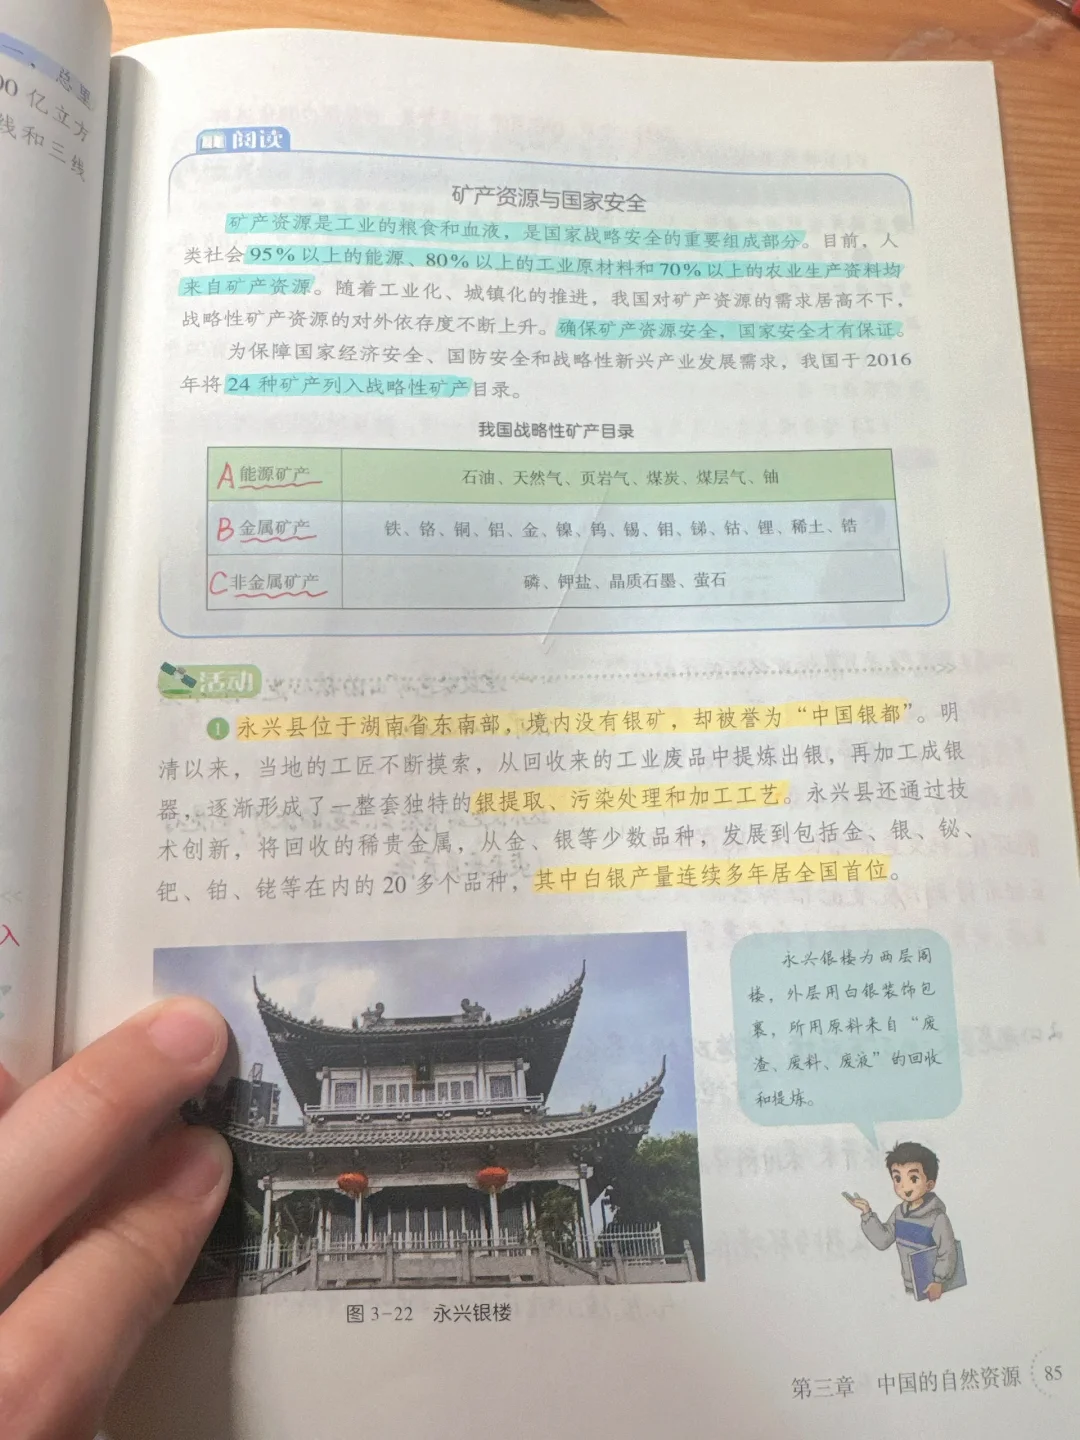 一、总里
00 亿立方
线和三线
阅读
矿产资源与国家安全
矿产资源是工业的粮食和血液，是国家战略安全的重要组成部分。目前，人
类社会 95% 以上的能源、80% 以上的工业原材料和 70% 以上的农业生产资料均
来自矿产资源。随着工业化、城镇化的推进，我国对矿产资源的需求居高不下，
战略性矿产资源的对外依存度不断上升。确保矿产资源安全，国家安全才有保证。
为保障国家经济安全、国防安全和战略性新兴产业发展需求，我国于 2016
年将 24 种矿产列入战略性矿产目录。
我国战略性矿产目录
A 能源矿产 石油、天然气、页岩气、煤炭、煤层气、铀
B 金属矿产 铁、铬、铜、铝、金、镍、钨、锡、钼、锑、钴、锂、稀土、锆
C 非金属矿产 磷、钾盐、晶质石墨、萤石
活动
1 永兴县位于湖南省东南部，境内没有银矿，却被誉为“中国银都”。明
清以来，当地的工匠不断摸索，从回收来的工业废品中提炼出银，再加工成银
器，逐渐形成了一整套独特的银提取、污染处理和加工工艺。永兴县还通过技
术创新，将回收的稀贵金属，从金、银等少数品种，发展到包括金、银、铋、
钯、铂、铑等在内的 20 多个品种，其中白银产量连续多年居全国首位。
永兴银楼为两层阁
楼，外层用白银装饰包
裹，所用原料来自“废
渣、废料、废液”的回收
和提炼。
入
图 3-22 永兴银楼
第三章 中国的自然资源 85